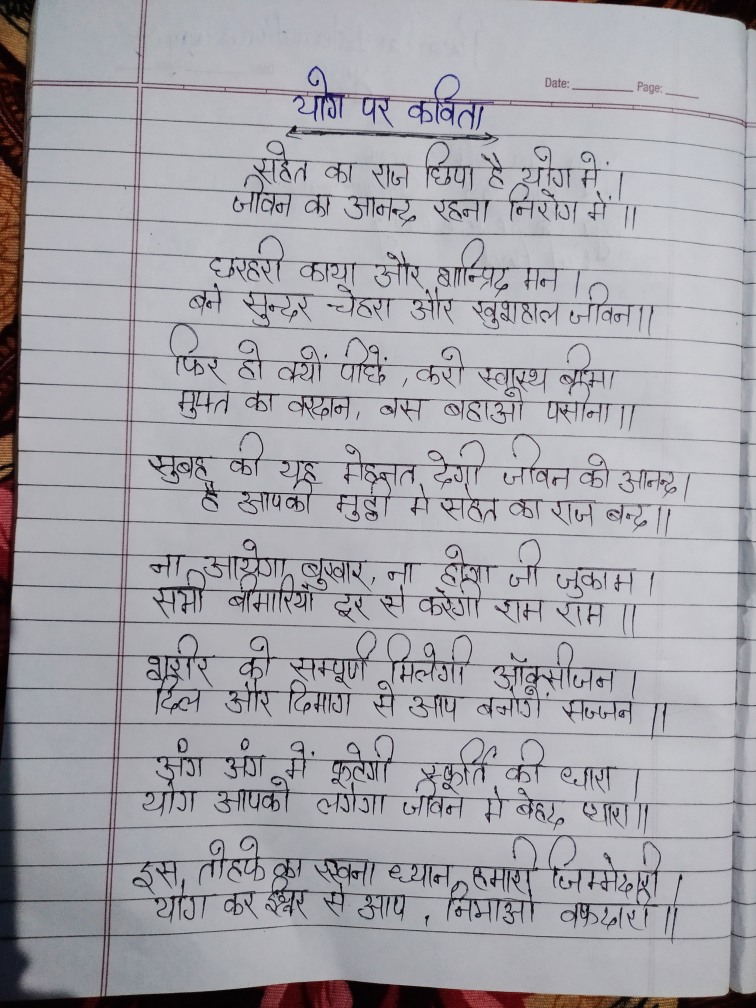 Date: Page:
योग पर कविता
सहेत का राज छिपा है योग में।
जीवन का आनन्द रहना निरोग में॥
छरहरी काया और शान्प्रिद मन।
बने सुन्दर चेहरा और खुशहाल जीवन॥
फिर हो क्यों पीछें, करो स्वास्थ बीमा
मुफ्त का वरदान, बस बहाओं पसीना॥
सुबह की यह मेहनत देगी जीवन को आनन्द।
है आपकी मुठ्ठी मे सहेत का राज बन्द॥
ना आयेगा बुखार, ना होगा जी जुकाम।
सभी बीमारियाँ दूर से करेगी राम राम॥
शरीर को सम्पूर्ण मिलेगी ऑक्सीजन।
दिल और दिमाग से आप बनोगें सज्जन॥
अंग अंग में फूटेगी स्फूर्ति की धारा।
योग आपको लगेगा जीवन मे बेहद प्यारा॥
इस, तोहफे का रखना ध्यान, हमारी जिम्मेदारी।
योग कर ईश्वर से आप, निभाओ वफादारी॥